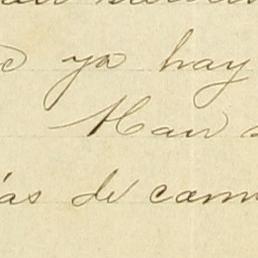 ya hay
Han
ás de cam